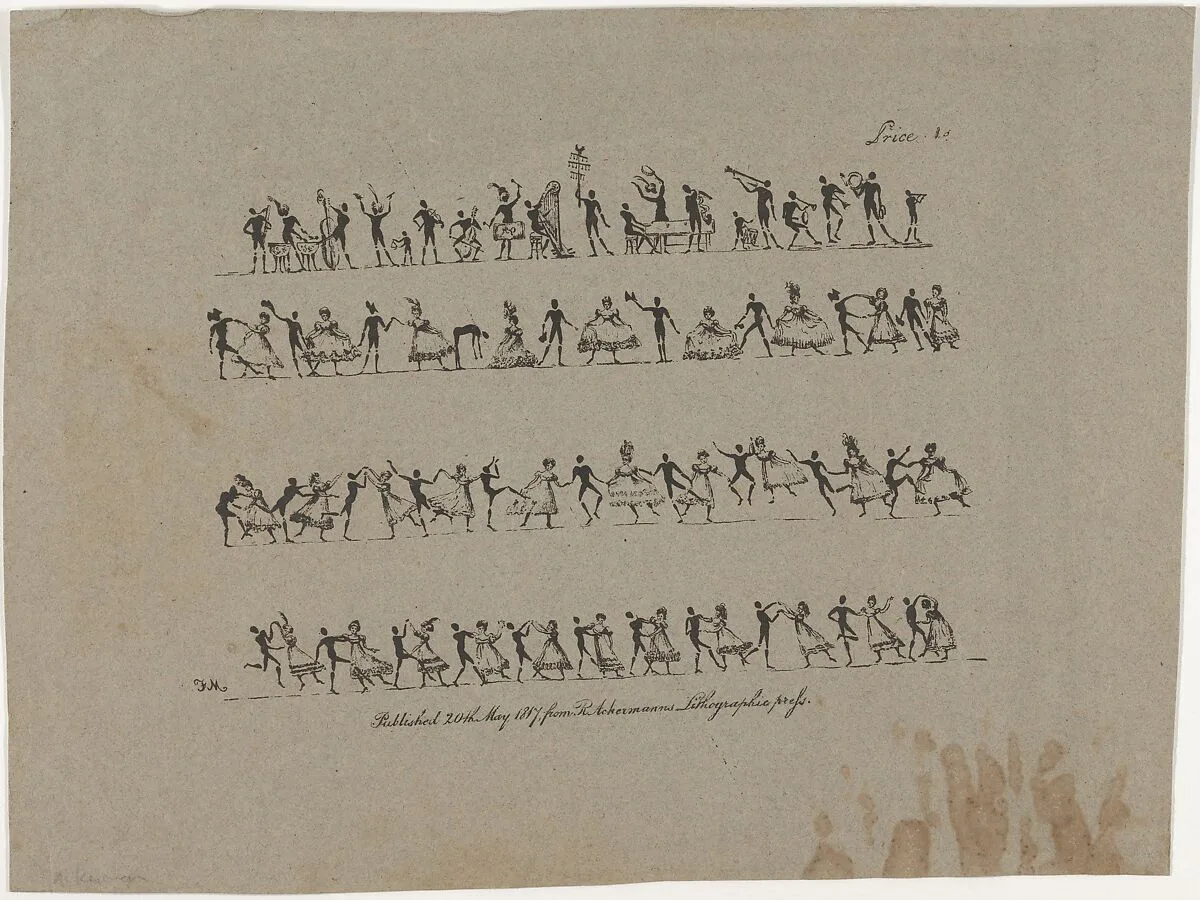 Price . 1s.
FM
Published 20th May 1817, from R. Ackermanns Lithographic press.